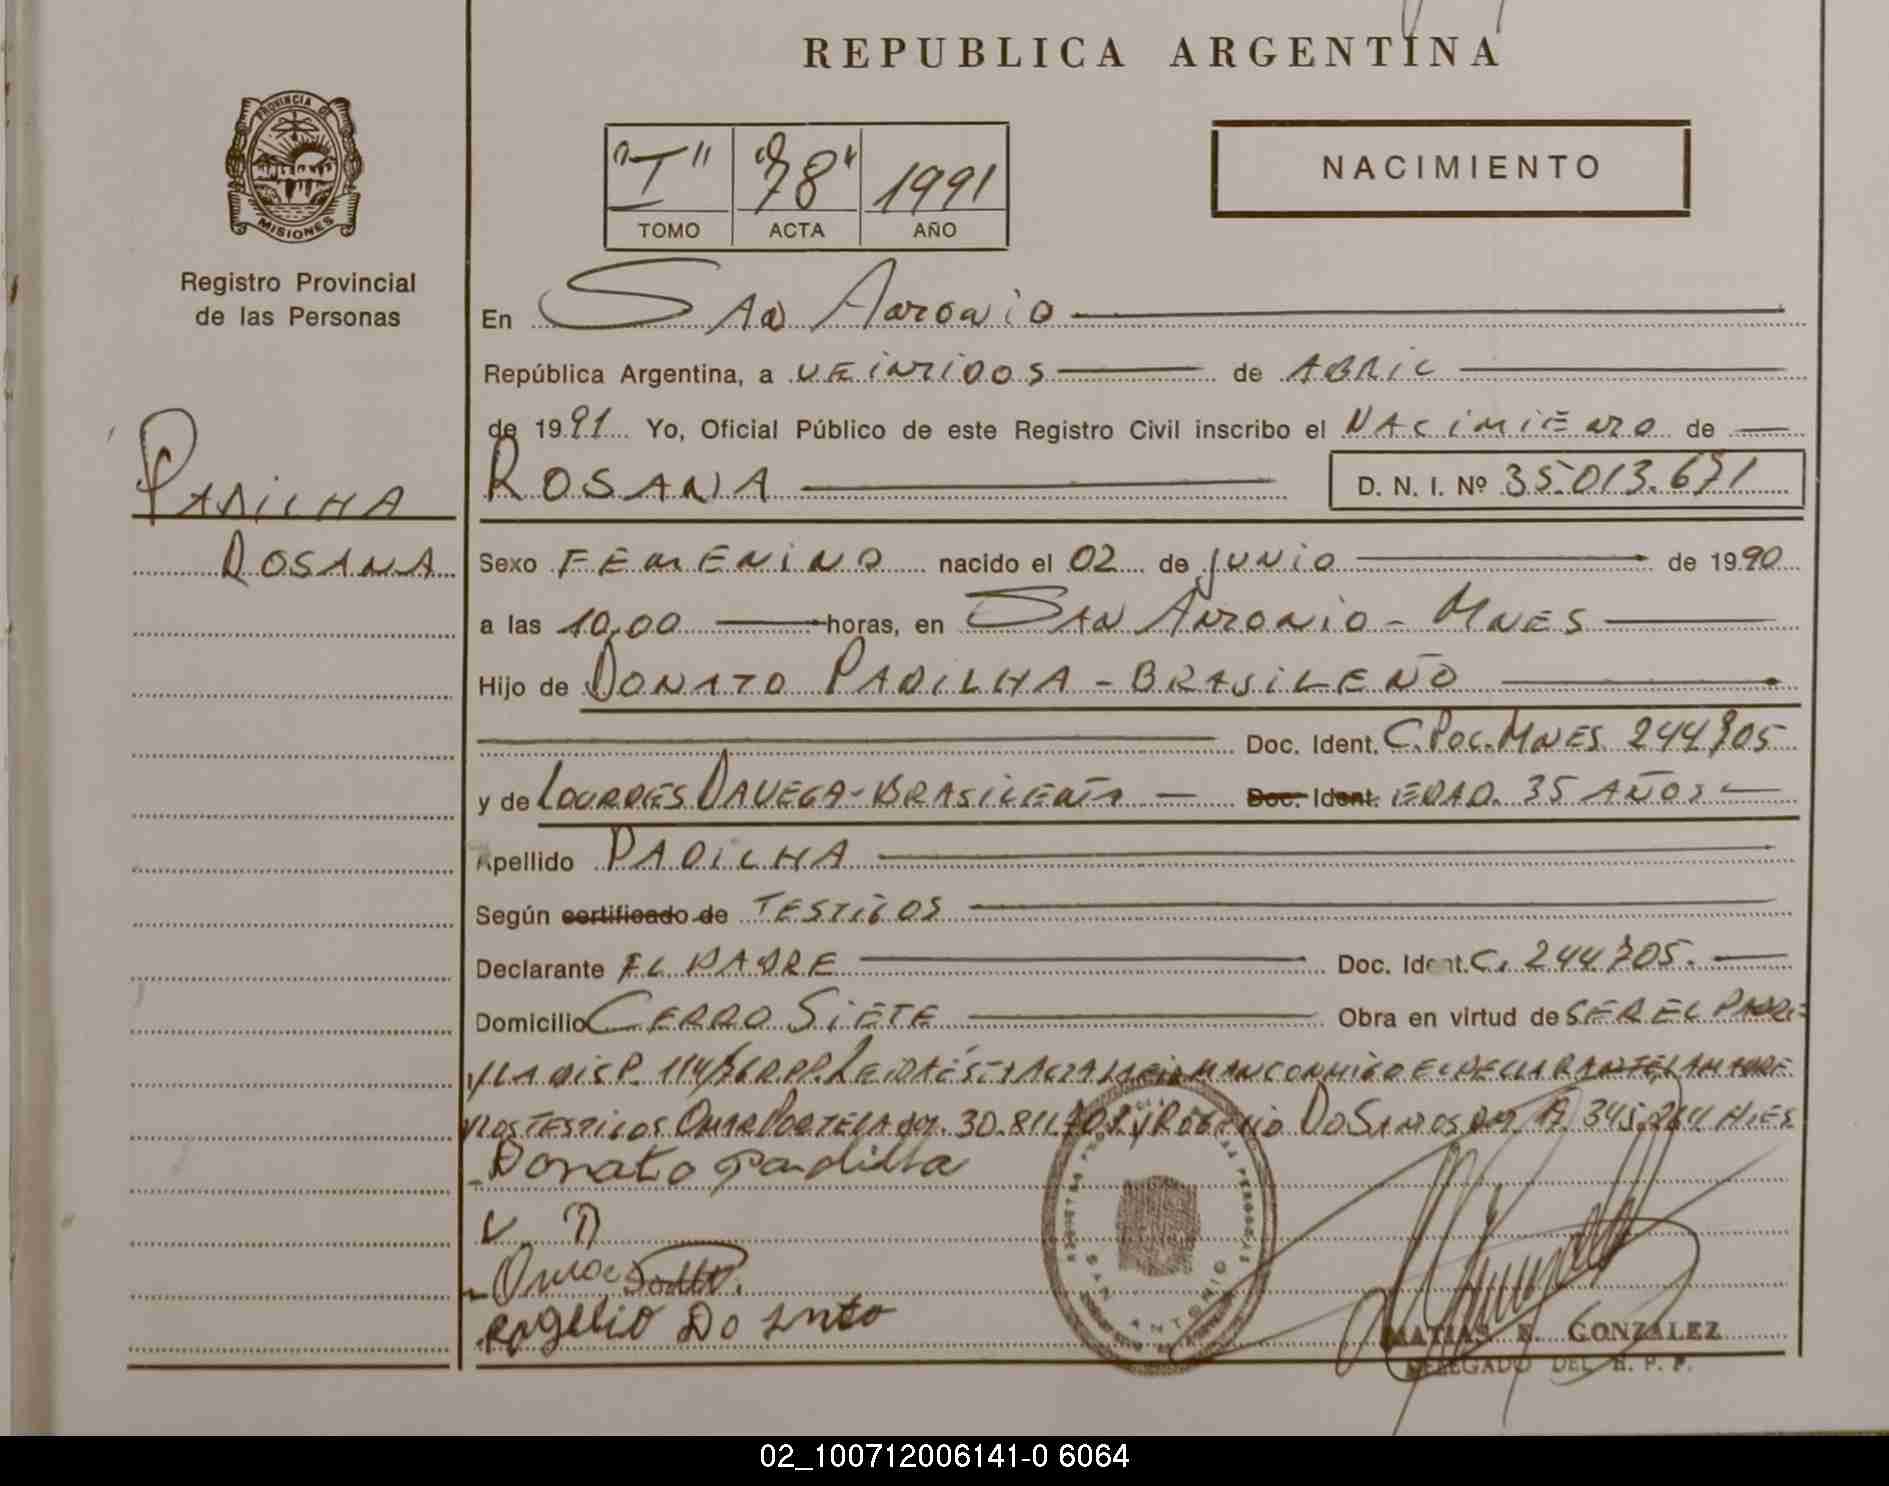 REPUBLICA ARGENTINA
PROVINCIA DE
MISIONES
Registro Provincial
de las Personas
"I" "78" 1991
TOMO ACTA AÑO
NACIMIENTO
En San Antonio
República Argentina, a veintidos de ABRIL
de 1991 Yo, Oficial Público de este Registro Civil inscribo el NACIMIENTO de
PADILHA
ROSANA
ROSANA D. N. I. Nº 35.013.671
Sexo FEMENINO nacido el 02 de JUNIO de 1990
a las 10,00 horas, en SAN ANTONIO - MNES
Hijo de DONATO PADILHA - BRASILEÑO
Doc. Ident. C.POL.MNES 244705
y de LOURDES DAVEGA - BRASILEÑA Doc. Ident. EDAD. 35 AÑOS
Apellido PADILHA
Según certificado de TESTIGOS
Declarante EL PADRE Doc. Ident. C. 244705.
Domicilio CERRO SIETE Obra en virtud de SER EL PADRE
Y LA DISP. 114/ LEIDA ESTA ACTA LA FIRMAN CONMIGO EL DECLARANTE, LA MADRE
Y LOS TESTIGOS OMAR PORTELA DNI. 30.811.708 Y ROGELIO DO SANTOS 345.214 MNES
Donato Padilha
L D
Omar
Rogelio Do
SAN ANTONIO
MATIAS E. GONZALEZ
DELEGADO DEL R. P. P.
02_100712006141-0 6064